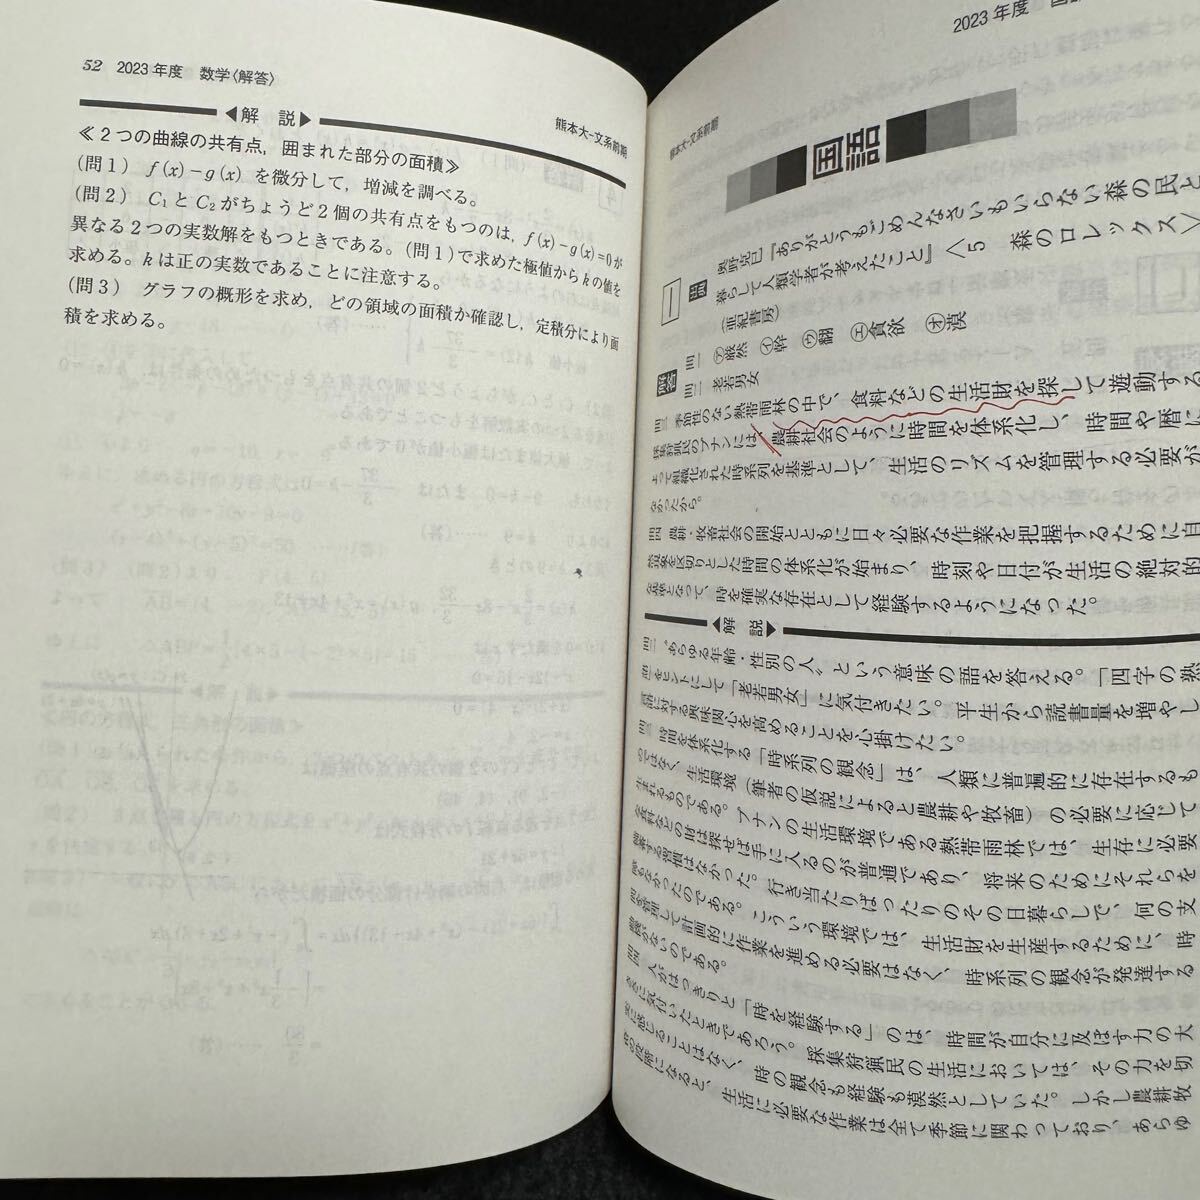 52 2023年度 数学〈解答〉
熊本大-文系前期
◀解 説▶
≪2つの曲線の共有点，囲まれた部分の面積≫
(問1) f(x)−g(x) を微分して，増減を調べる。
(問2) C₁とC₂がちょうど2個の共有点をもつのは，f(x)−g(x)=0が
異なる2つの実数解をもつときである。(問1)で求めた極値からkの値を
求める。kは正の実数であることに注意する。
(問3) グラフの概形を求め，どの領域の面積か確認し，定積分により面
積を求める。
2023年度
熊本大-文系前期
国語
一
出典
奥野克巳『ありがとうもごめんなさいもいらない森の民と
暮らして人類学者が考えたこと』〈5 森のロレックス〉
(亜紀書房)
解答
問一 ㋐厳然 ㋑幹 ㋒翻 ㋓貪欲 ㋔漠
問二 老若男女
問三 季節性のない熱帯雨林の中で、食料などの生活財を探して遊動する
採集狩猟民のプナンには、農耕社会のように時間を体系化し、時間や暦に
よって組織化された時系列を基準として、生活のリズムを管理する必要が
なかったから。
問四 農耕・牧畜社会の開始とともに日々必要な作業を把握するために自
然現象を区切りとした時間の体系化が始まり、時刻や日付が生活の絶対的
な基準となって、時を確実な存在として経験するようになった。
◀解 説▶
問二 "あらゆる年齢・性別の人"という意味の語を答える。「四字の熟
語」をヒントにして「老若男女」に気付きたい。平生から読書量を増やし
語に対する興味関心を高めることを心掛けたい。
問三 時間を体系化する「時系列の観念」は、人類に普遍的に存在するも
のではなく、生活環境（筆者の仮説によると農耕や牧畜）の必要に応じて
生まれるものである。プナンの生活環境である熱帯雨林では、生存に必要
な食料などの財は探せば手に入るのが普通であり、将来のためにそれらを
備蓄する習慣はなかった。行き当たりばったりのその日暮らしで、何の支
障もなかったのである。こういう環境では、生活財を生産するために、時
間を管理して計画的に作業を進める必要はなく、時系列の観念が発達する
機会がないのである。
問四 人がはっきりと「時を経験する」のは、時間が自分に及ぼす力の大
きさに気付いたときであろう。採集狩猟民の生活においては、その力を切
実に感じることはなく、時の観念も経験も漠然としていた。しかし農耕牧
畜の段階になると、生活に必要な作業は全て季節に関わっており、あらゆ